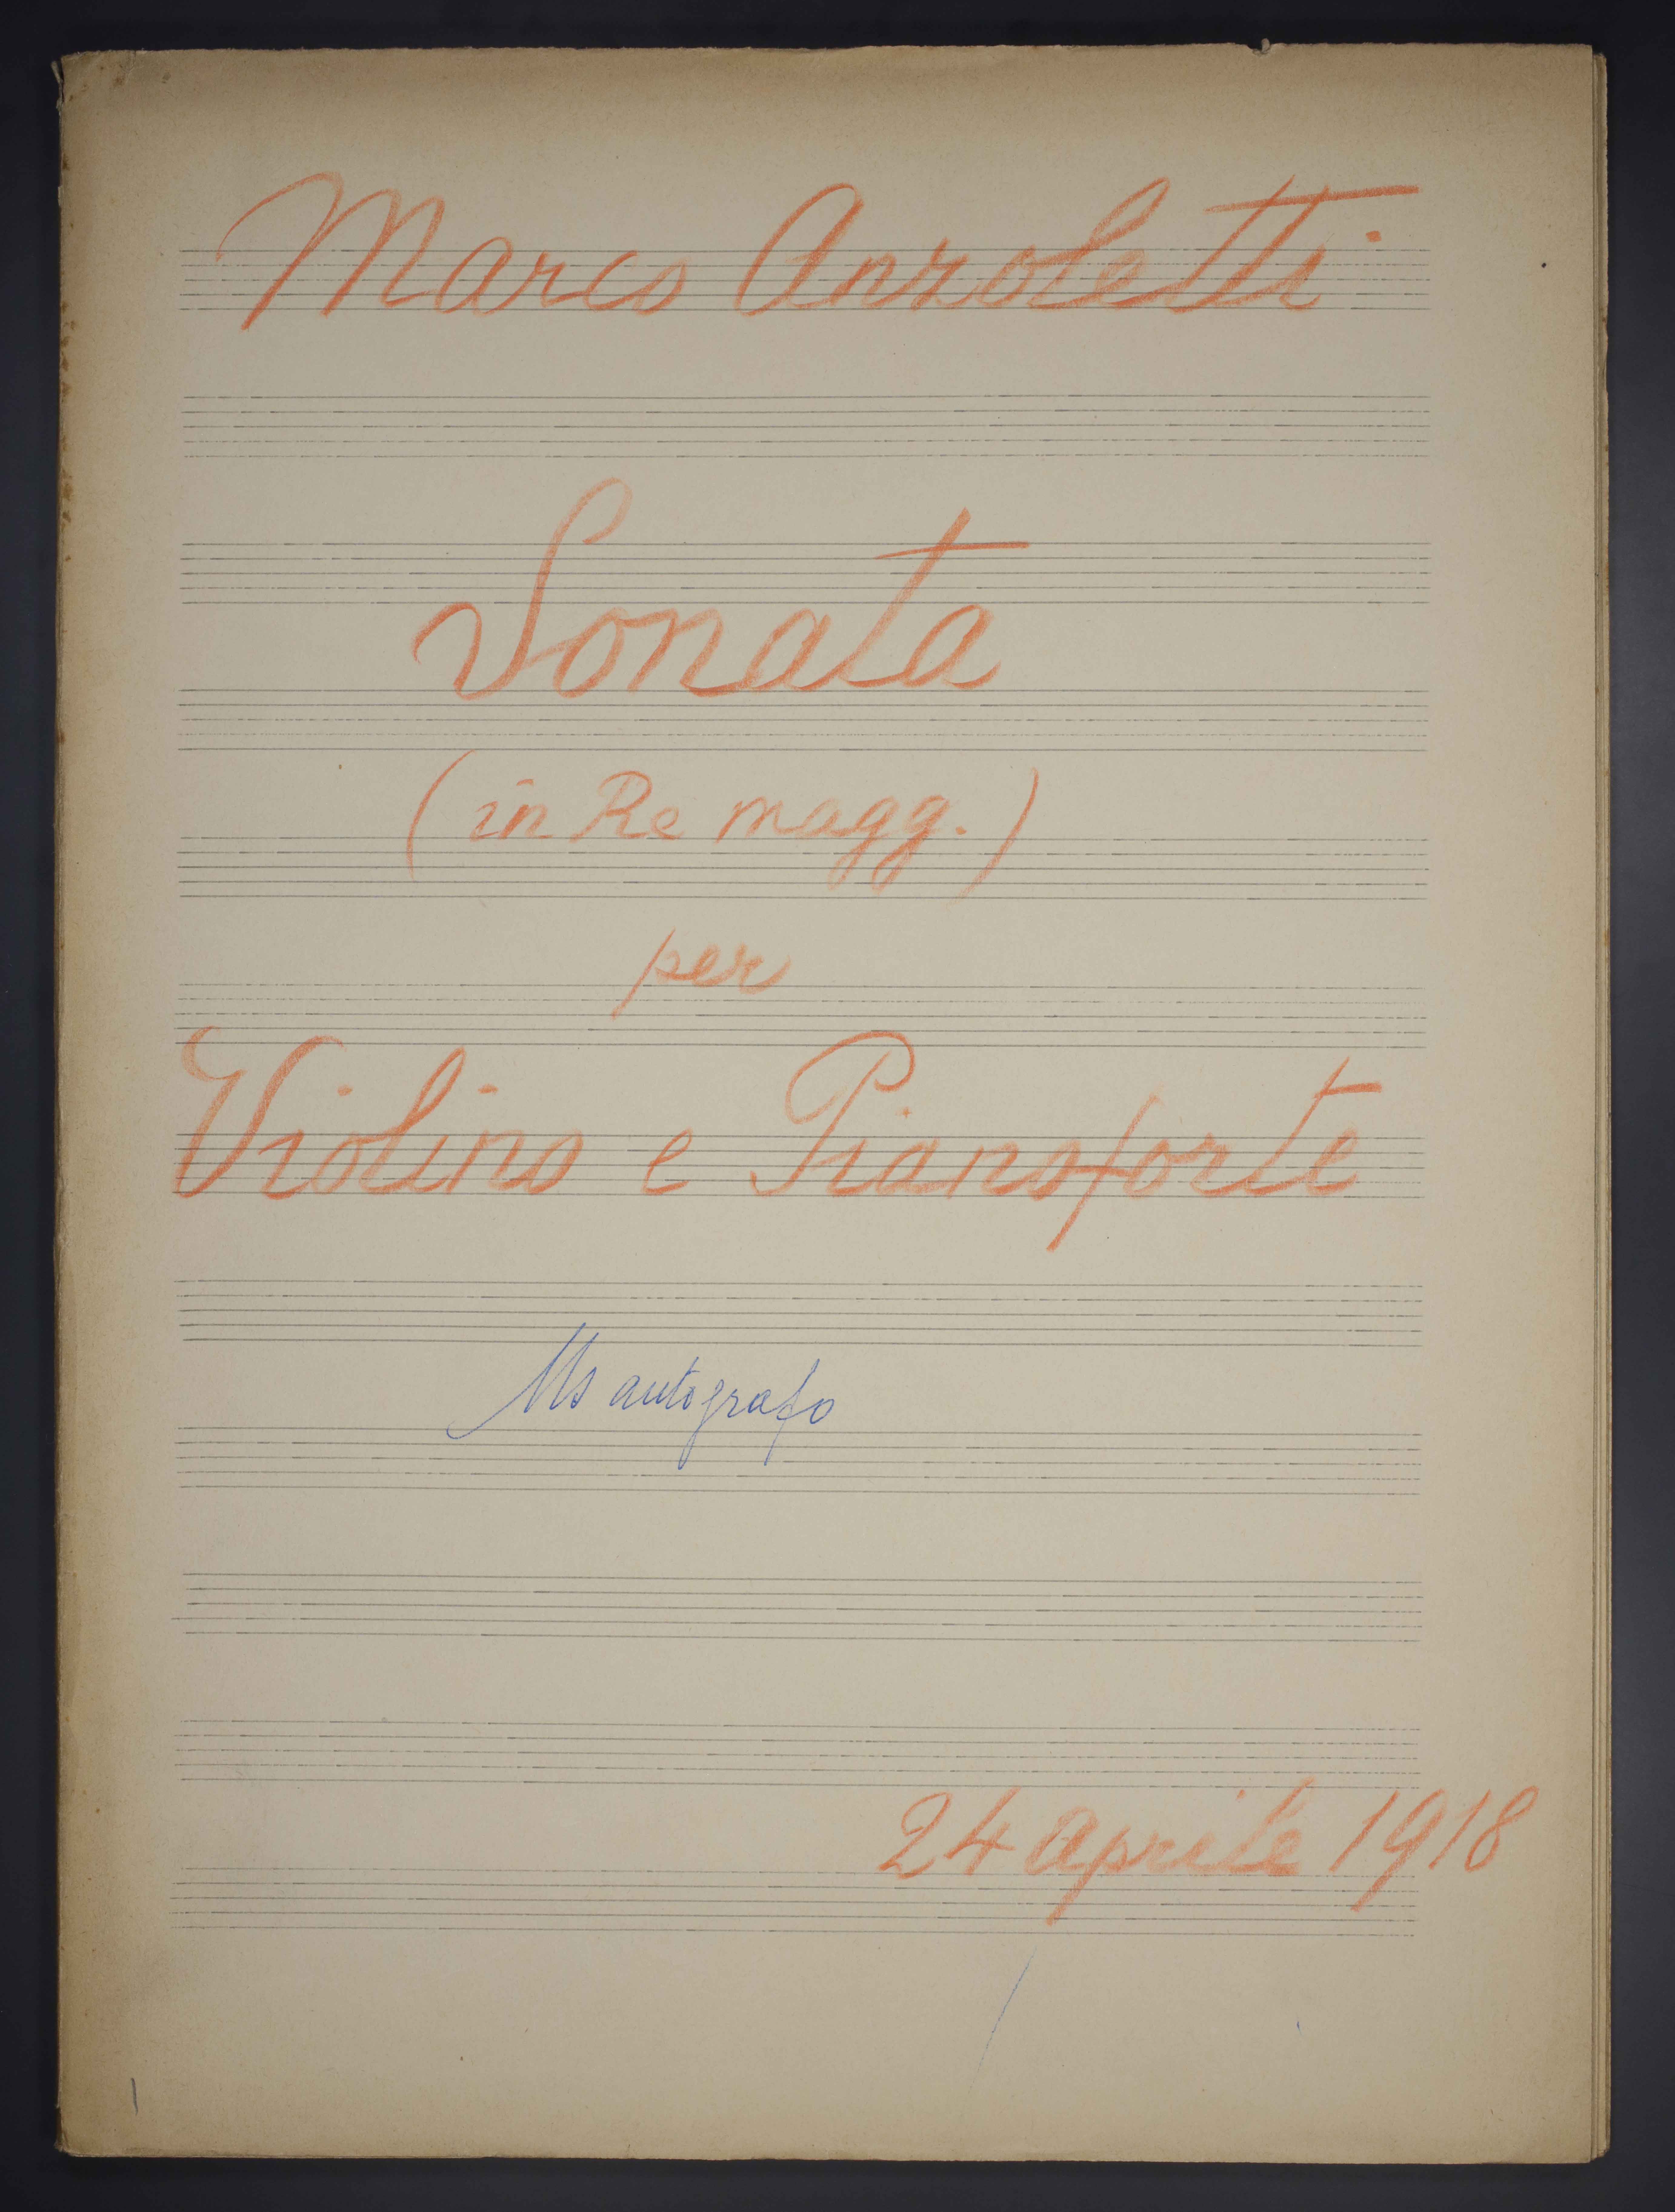 Marco Anzoletti
Sonata
(in Re magg.)
per
Violino e Pianoforte
Ms autografo
24 aprile 1918